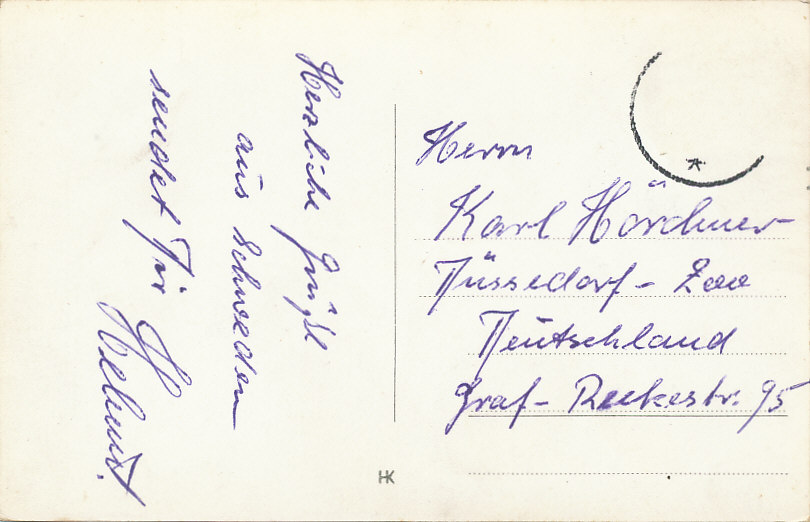 Herzliche Grüße
aus Schweden
sendet Dir
Helmut.
Herrn
Karl Hördner
Düssedorf - Zoo
Deutschland
Graf - Reckestr. 95
HK